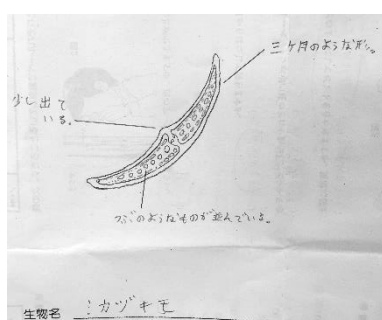 三ケ月のような形。
少し出て
いる。
つぶのようなものが並んでいる。
生物名 ミカヅキモ